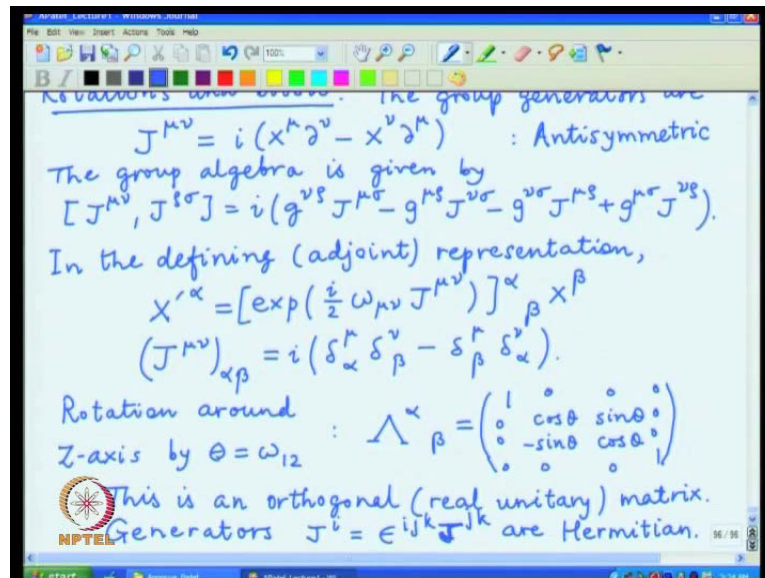 APatel_Lecture1 - Windows Journal
File Edit View Insert Actions Tools Help
100%
B I
Rotations and boosts: The group generators are
J^{μν} = i (x^μ ∂^ν − x^ν ∂^μ) : Antisymmetric
The group algebra is given by
[J^{μν}, J^{ρσ}] = i(g^{νρ} J^{μσ} − g^{μρ} J^{νσ} − g^{νσ} J^{μρ} + g^{μσ} J^{νρ}).
In the defining (adjoint) representation,
x'^α = [exp(i/2 ω_{μν} J^{μν})]^α_β x^β
(J^{μν})_{αβ} = i(δ^μ_α δ^ν_β − δ^μ_β δ^ν_α).
Rotation around
Z-axis by θ = ω_{12} : Λ^α_β = (1 0 0 0
0 cosθ sinθ 0
0 -sinθ cosθ 0
0 0 0 1)
This is an orthogonal (real unitary) matrix.
Generators J^i = ε^{ijk} J^{jk} are Hermitian.
NPTEL
96/96
start